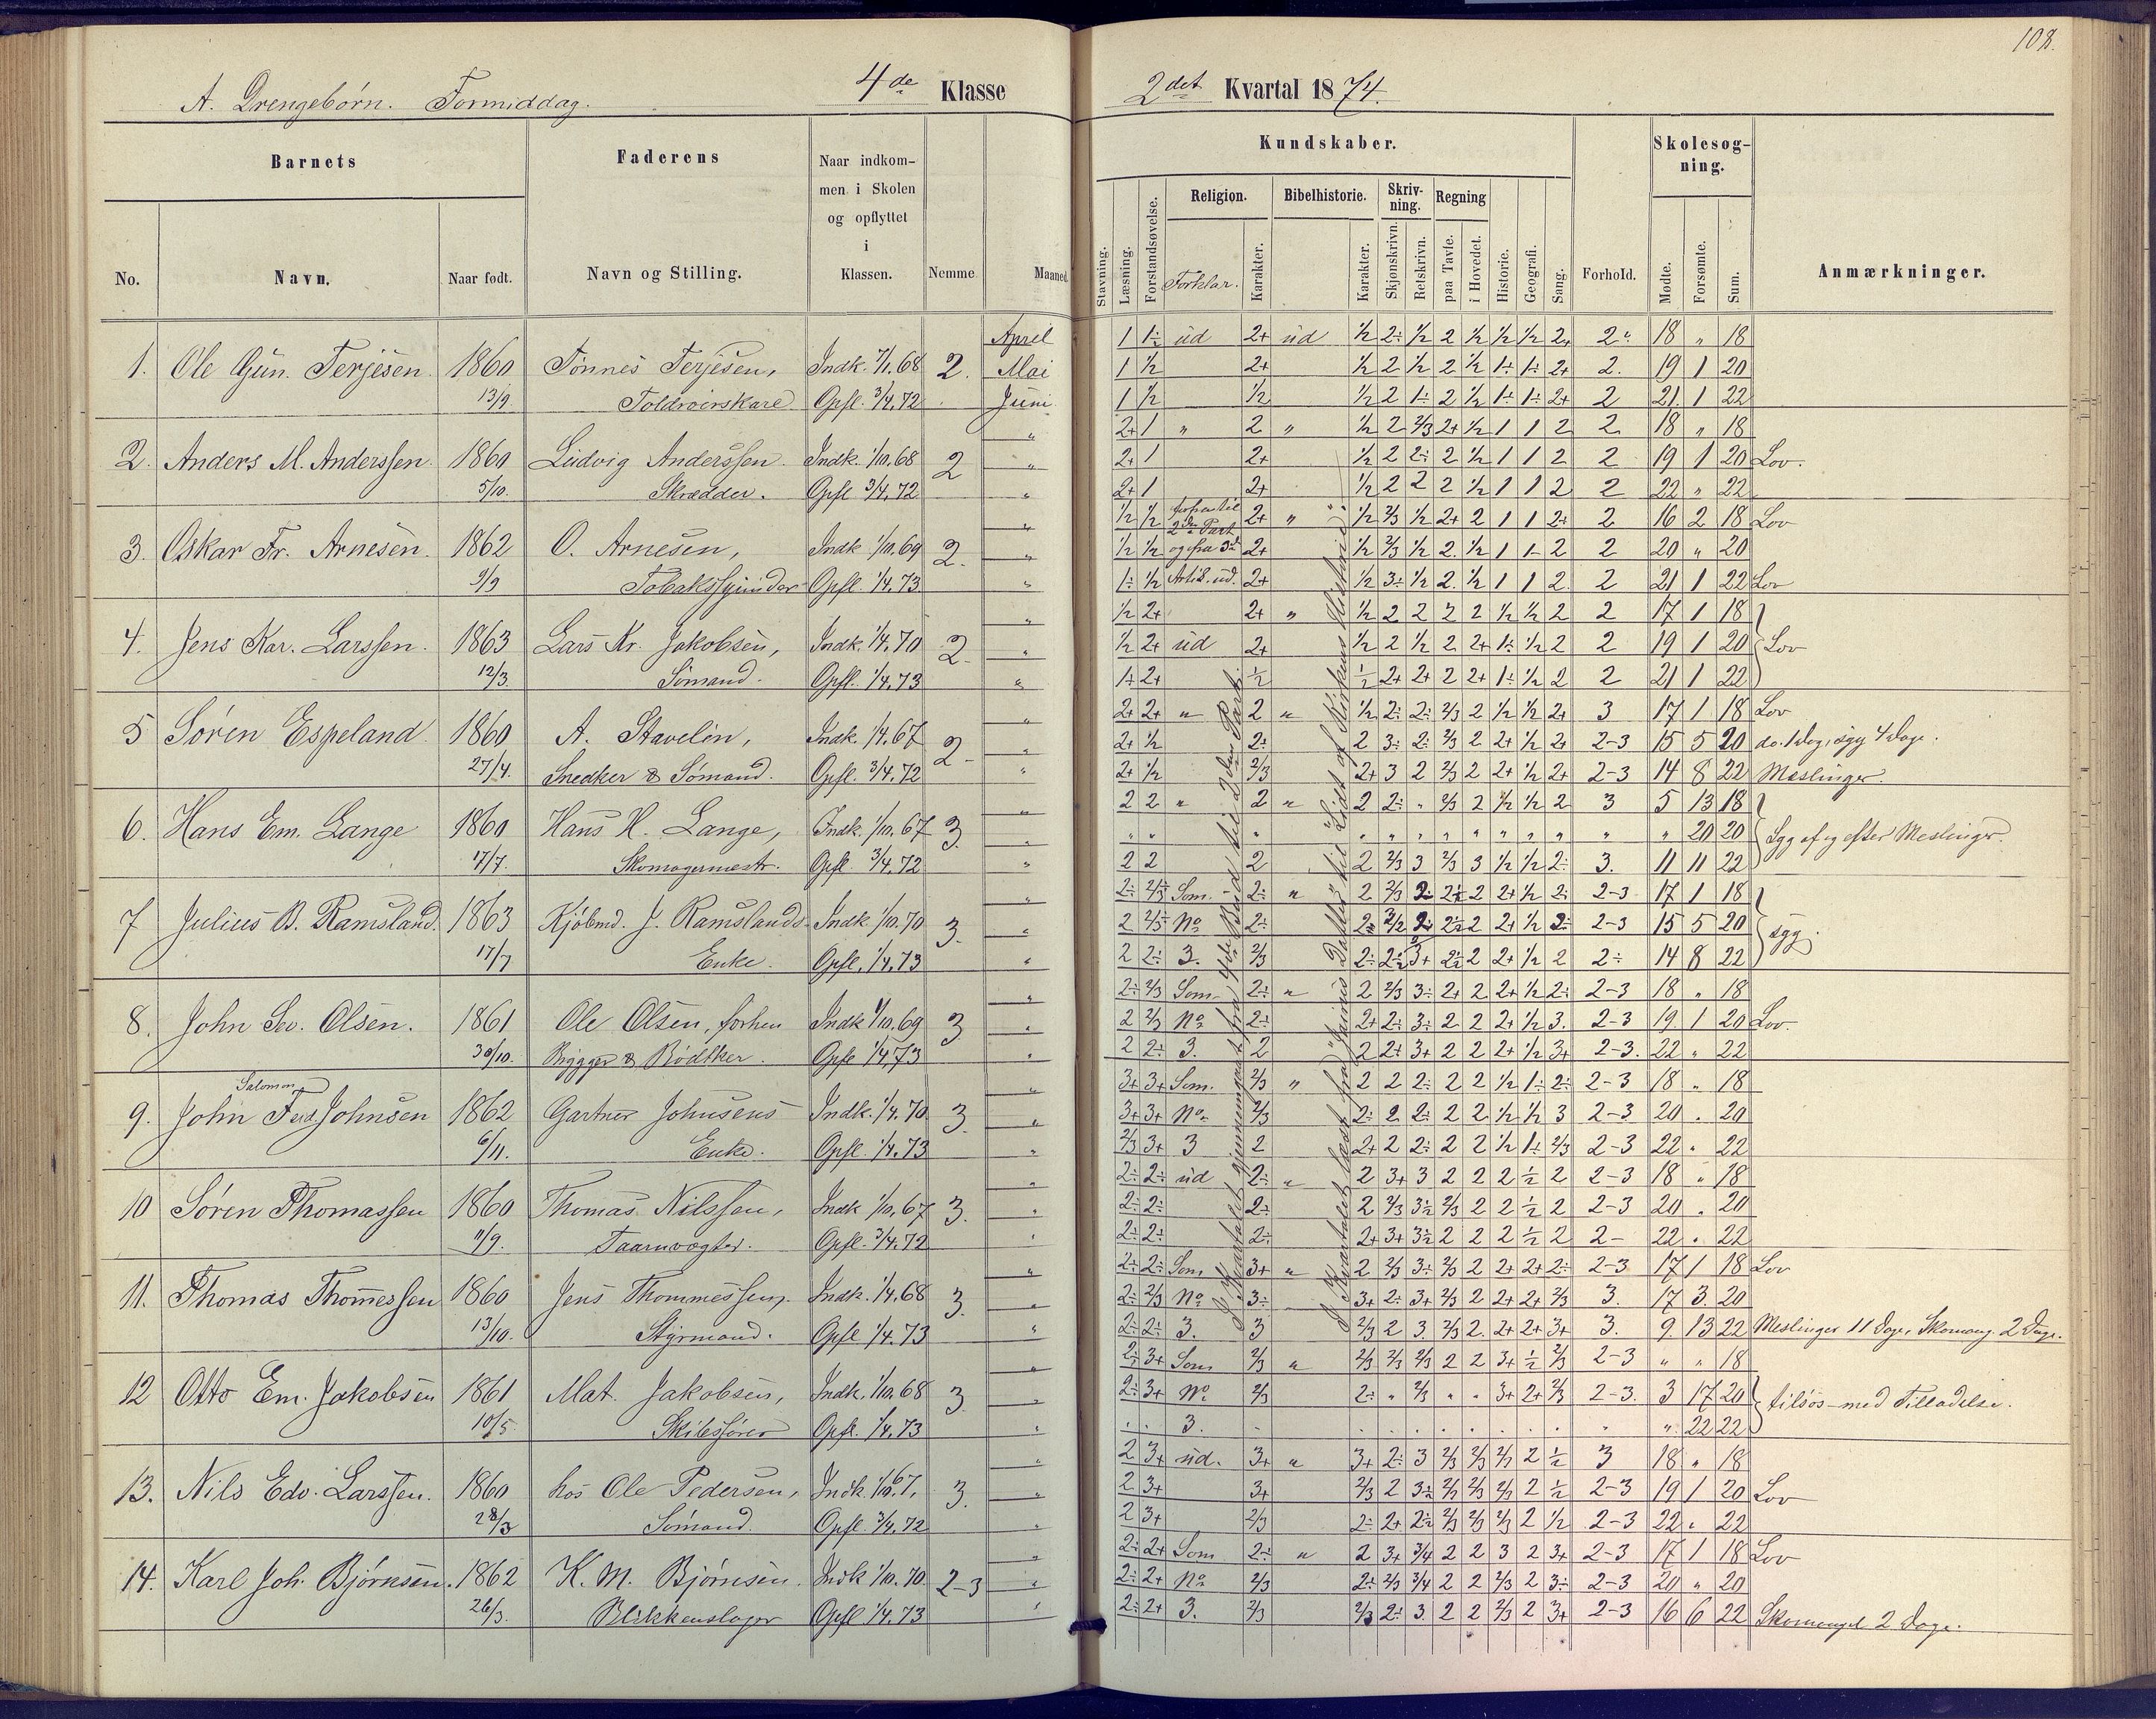 108.
A. Drengebörn. Formiddag. 4de Klasse
2det Kvartal 1874.
Barnets
Faderens
Naar indkommen i Skolen og opflyttet i Klassen.
Nemme
Maaned
Kundskaber.
Skolesøgning.
No.
Navn.
Naar født.
Navn og Stilling.
Stavning.
Læsning.
Forstandsøvelse.
Religion.
Forklar.
Karakter.
Bibelhistorie.
Karakter.
Skrivning.
Skjønskrivn.
Retskrivn.
Regning
paa Tavle.
i Hovedet.
Historie.
Geografi.
Sang.
Forhold.
Mødte.
Forsømte.
Sum.
Anmærkninger.
April 1 1½ ud 2+ ud ½ 2÷ ½ 2 ½ ½ ½ 2+ 2 18 " 18
1. Ole Gun. Terjesen. 1860 Tönnes Terjesen, Indk. 7/1.68 2. Mai 1 ½ 2+ ½ 2 ½ 2 ½ 1÷ 1÷ 2+ 2. 19 1 20
13/9 Toldroirskarl Opfl. 3/4.72 Juni 1 ½ ½ ½ 2 1÷ 2 ½ 1÷ 1÷ 2+ 2 21. 1 22
" 2+ 1 " 2 " ½ 2 2/3 2+ ½ 1 1 2 2 18 " 18
2. Anders M. Anderssen. 1860 Ludvig Anderssen. Indk. 1/10.68 2 " 2+ 1 2+ ½ 2 2÷ 2 ½ 1 1 2 2 19 1 20 Lov.
5/10. Skrædder. Opfl 3/4.72 " 2+ 1 2+ ½ 2 2 2 ½ 1 1 2 2 22 " 22
" ½ ½ 2den Part 2+ " ½ 2/3 ½ 2+ 2 1 1 2+ 2 16 2 18 Lov
3. Oskar Fr. Arnesen. 1862 O. Arnesen, Indk 1/10.69 2. " ½ ½ og fra 3d 2+ ½ 2/3 ½ 2. ½ 1 1 2 2 20 " 20
9/9 Tobaksspinder Opfl. 1/4.73 " 1÷ ½ Art. ud. 2+ ½ 3÷ ½ 2. ½ 1 1 2. 2 21 1 22 Lov
" ½ 2+ 2+ " ½ 2 2 2 2 ½ ½ 2 2 17 1 18
4. Jens Kar. Larssen. 1863 Lars Kr. Jakobsen, Indk. 1/4.70 2. " ½ 2+ ud 2+ ½ 2 ½ 2 2+ 1÷ ½ 2 2 19 1 20 Lov
12/3. Sömand. Opfl. 1/4.73 " 1÷ 2+ ½ ½ 2+ 2+ 2 2+ 1÷ ½ 2 2 21 1 22
" 2+ 2+ " 2 " ½ 2÷ 2÷ 2/3 2 ½ ½ 2+ 3 17 1 18 Lov
5 Sören Espeland 1860 A. Stavelin, Indk. 1/4.67 2 " 2+ ½ 2÷ 2 3÷ 2÷ 2/3 2 2+ ½ 2+ 2-3 15 5 20 do. 1 Dag, syg 4 Dage.
27/4. Snedker & Sömand. Opfl. 3/4.72 " 2+ ½ 2/3 2+ 3 2 2/3 2 2+ ½ 2+ 2-3 14 8 22 Meslinger.
" 2 2 " 2 " 2 2÷ " 2/3 2 ½ ½ 2 3 5 13 18
6. Hans Em. Lange 1860 Hans H. Lange, Indk. 1/10.67 3. " " " " " " " " " " " " " " 20 20 Syg af og efter Meslinger.
17/7. Skomagermestr. Opfl. 3/4.72 " 2 2 2 2 2/3 3 2/3 3 ½ ½ 2÷ 3. 11 11 22
" 2÷ 2/3 Som. 2÷ " 2 2/3 2÷ 2½ 2 2+ ½ 2÷ 2-3 17 1 18
7 Julius B. Ramsland. 1863 Kjöbmd. J. Ramslands Indk 1/10.70 3. " 2 2/3 No 2÷ 2÷ 2/2 2÷ 2½ 2 2+ ½ 2÷ 2-3 15 5 20 syg.
17/7 Enke. Opfl. 1/4.73 " 2 2÷ 3. 2/3 2÷ 2÷ 3+ 2½ 2 2+ ½ 2 2÷ 14 8 22
" 2÷ 2/3 Som 2÷ " 2 2/3 3÷ 2+ 2 2+ ½ 2÷ 2-3 18 " 18
8. John Sev. Olsen. 1861 Ole Olsen, forhen Indk 1/10.69 3 " 2 2/3 No 2÷ 2+ 2÷ 3÷ 2 2 2+ ½ 3. 2-3 19. 1 20 Lov.
30/10. Brygger & Bödtker. Opfl 1/4.73 " 2 2÷ 3. 2 2 2+ 3+ 2 2 2+ ½ 3+ 2-3. 22 " 22
Salomon " 3+ 3+ Som. 2/3 " 2 2 2÷ 2 2 ½ 1÷ 2÷ 2-3 18 " 18
9. John Ferd Johnsen 1862 Gartner Johnsens Indk. 1/4.70. 3. " 3+ 3+ No 2/3 2÷ 2 2÷ 2 2 ½ ½ 3 2-3 20 . 20
6/11. Enke. Opfl. 1/4.73 " 2/3 3+ 3 2 2+ 2 2÷ 2 2 ½ 1÷ 2/3 2-3 22 " 22
" 2÷ 2÷ ud 2÷ " 2 3+ 3 2 2 2 ½ 2 2-3 18 " 18
10 Sören Thomassen 1860 Thomas Nilssen, Indk 1/10.67 3. " 2÷ 2÷ 2÷ 2 2/3 3½ 2/3 2 2 ½ 2 2-3 20 . 20
11/9. Taarnvægter. Opfl. 3/4.72 " 2÷ 2÷ 2÷ 2+ 3+ 3½ 2 2 2 ½ 2 2- 22 . 22
" 2÷ 2÷ Som 3+ " 2 2/3 3÷ 2/3 2 2+ 2+ 2÷ 2-3 17 1 18 Lov
11. Thomas Thomessen 1860 Jens Thommessen. Indk. 1/4.68 3. " 2÷ 2/3 No 3÷ 3+ 2÷ 3+ 2/3 2 2+ 2+ 2/3 3. 17 3. 20
13/10. Styrmand. Opfl 1/4.73 " 2÷ 2÷ 3. 3 2/3 2 3. 2/3 2. 2+ 2+ 3+ 3. 9. 13 22 Meslinger 11 Dage, Skomang. 2 Dage.
" 2÷ 3+ Som 2/3 " 2/3 2/3 2/3 2 2 3+ ½ 2/3 2-3 " " 18
12 Otto Em. Jakobsen 1861 Mat. Jakobsen, Indk. 1/10.68 3. " 2÷ 3+ No 2/3 2÷ " 2/3 " " 3+ 2+ 2/3 2-3. 3 17 20 tilsös med Tilladelse.
10/5. Skibsförer Opfl. 1/4.73 " . . 3. . . . . . . . . . . " 22 22
" 2 3+ ud. 3+ " 3+ 2÷ 3 2/3 2/3 2/3 2 ½ 3 18 " 18
13. Nils Edv. Larssen. 1860 hos Ole Pedersen, Indk. 1/10.67. 3. " 2 3+ 3+ 2/3 2 3½ 2/3 2/3 2/3 2 ½ 2-3 19 1 20 Lov
28/3 Sömand. Opfl. 3/4.72 " 2 3+ 2/3 2÷ 2+ 2½ 2/3 2/3 2/3 2 ½ 2-3 22 " 22
" 2÷ 2+ Som 2÷ " 2 3+ 3/4 2 2 3 2 3+ 2-3 17 1 18 Lov
14. Karl Joh. Björnsen. 1862 K. M. Björnsen. Indk 1/10.70. 2-3 " 2÷ 2+ No 2/3 2÷ 2/3 3/4 2 2 2/3 2 3÷ 2-3 20 " 20
26/3. Blikkenslager Opfl 1/4.73 " 2÷ 2+ 3. 2/3 2/3 2÷ 3. 2 2 2/3 2 3+ 2-3 16 6 22 Skomangel 2 Dage.
I Kvartalet gjennemgaaet fra 4de Bud til 2den Part.
I Kvartalet læst fra "Jairus Datter" til "Lidt af Kirkens Historie".